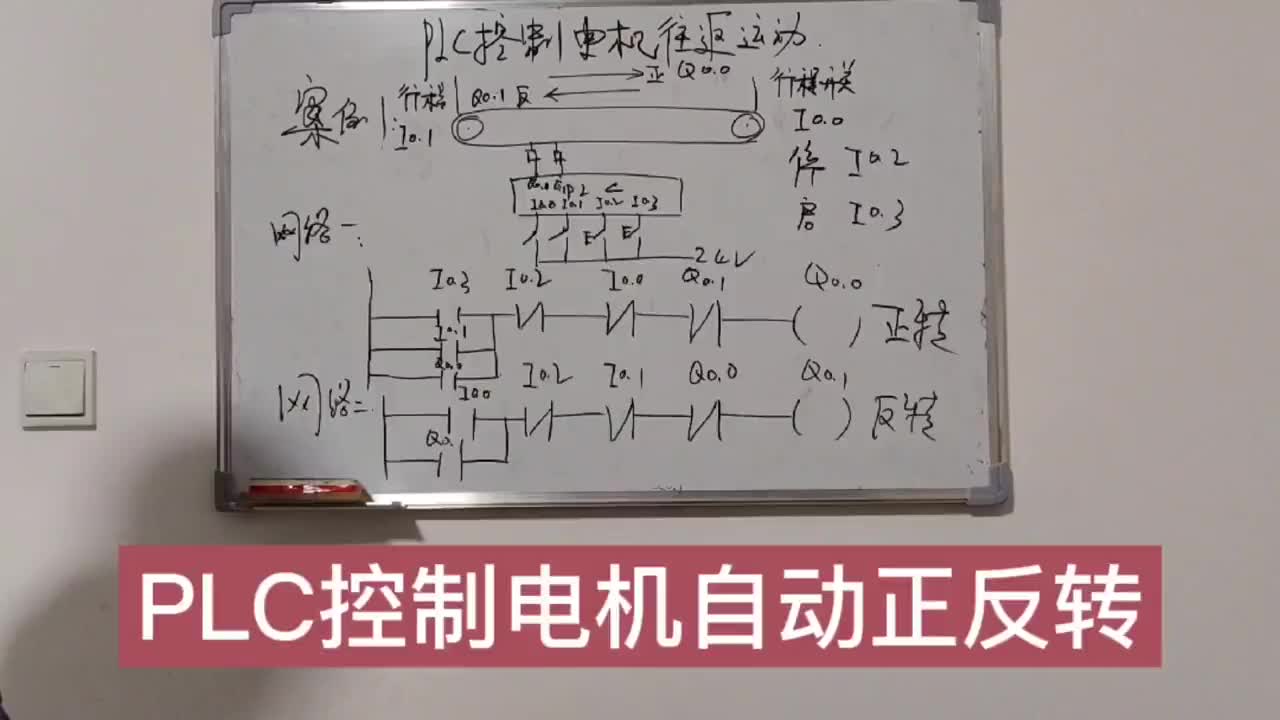 PLC控制电机往返运动.
正 Q0.0
案例1: 行程 I0.1
Q0.1 反
行程开关
I0.0
停 I0.2
启 I0.3
I0.0 I0.1 I0.2 I0.3
24V
网络一:
I0.3 I0.2 I0.0 Q0.1 Q0.0
I0.1
Q0.0
( ) 正转
网络二:
I0.0 I0.2 I0.1 Q0.0 Q0.1
Q0.
( ) 反转
PLC控制电机自动正反转